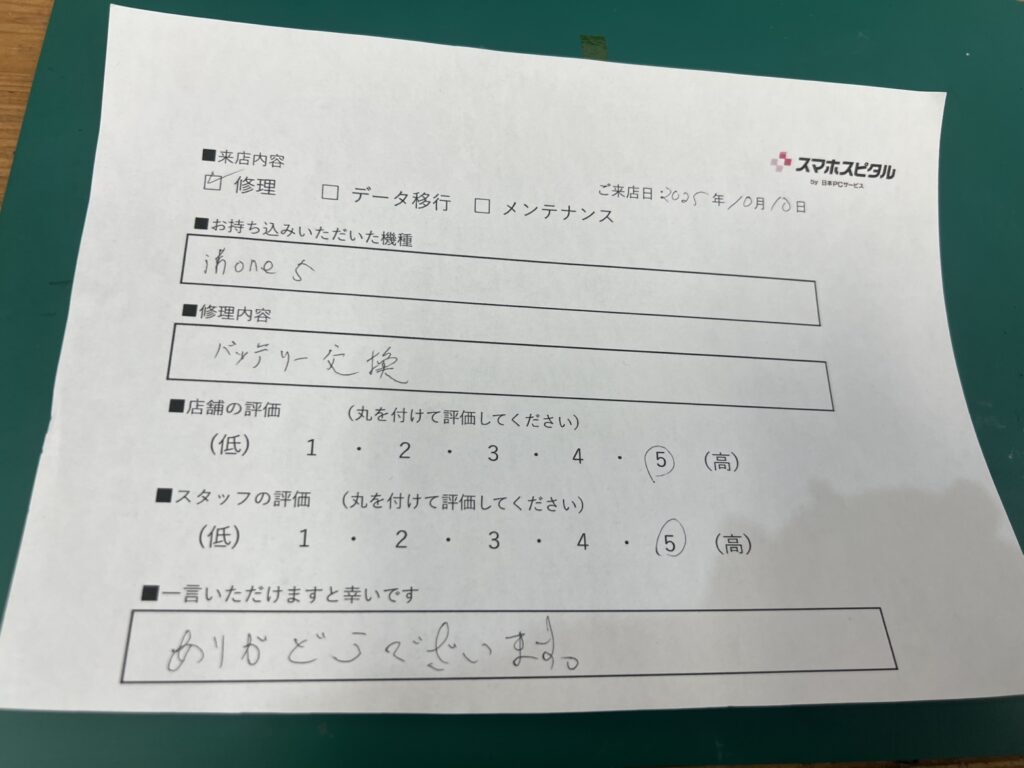 スマホスピタル
by 日本PCサービス
■来店内容
☑ 修理 □ データ移行 □ メンテナンス
ご来店日:2025年10月10日
■お持ち込みいただいた機種
ihone 5
■修理内容
バッテリー交換
■店舗の評価 (丸を付けて評価してください)
(低) 1 ・ 2 ・ 3 ・ 4 ・ 5 (高)
■スタッフの評価 (丸を付けて評価してください)
(低) 1 ・ 2 ・ 3 ・ 4 ・ 5 (高)
■一言いただけますと幸いです
ありがどうございます。